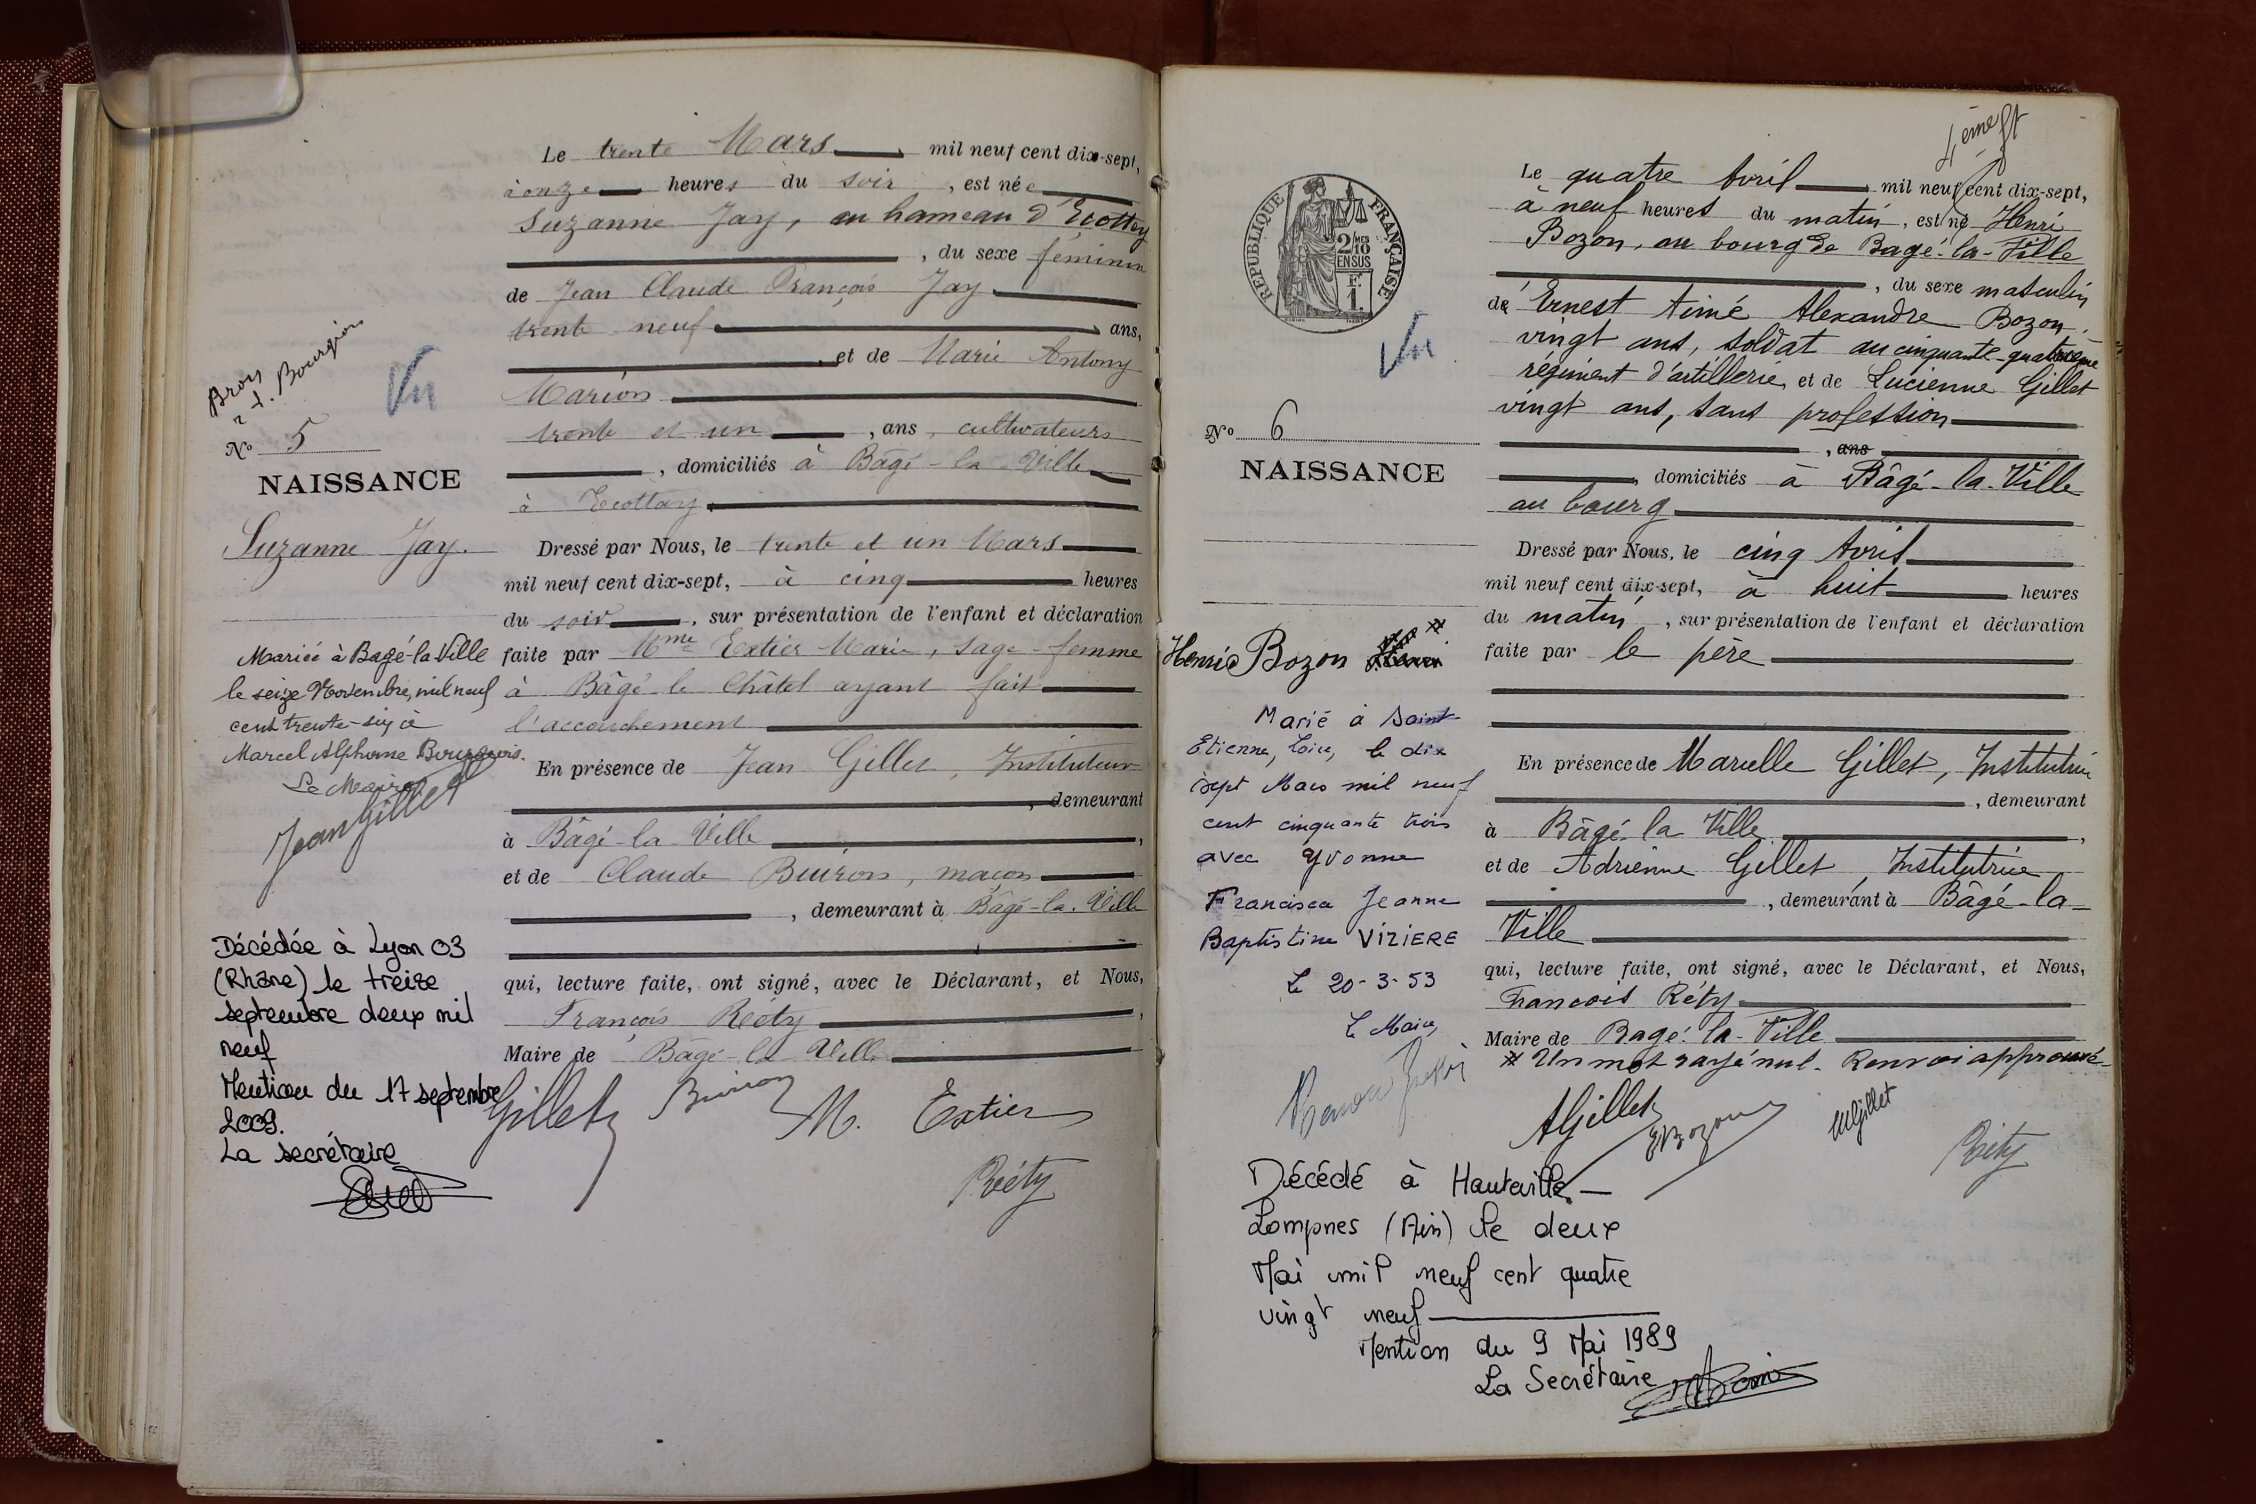 Le trente Mars mil neuf cent dix-sept,
à onze heures du soir, est née
Suzanne Jay, au hameau d'Ecottay
, du sexe féminin
de Jean Claude François Jay
trente neuf ans,
et de Marie Antony
Marion
trente et un, ans, cultivateurs
, domiciliés à Bâgé-la-Ville
à Ecottay
Dressé par Nous, le trente et un Mars
mil neuf cent dix-sept, à cinq heures
du soir, sur présentation de l'enfant et déclaration
faite par Mme Extier Marie, sage-femme
à Bâgé-le Châtel ayant fait
l'accouchement
En présence de Jean Gillet, Instituteur
, demeurant
à Bâgé-la-Ville,
et de Claude Buiron, maçon
, demeurant à Bâgé-la-Ville
qui, lecture faite, ont signé, avec le Déclarant, et Nous,
François Réty,
Maire de Bâgé-la Ville
Gillet Buiron M. Extier
Réty
Bron
Bourgeois
Vu
No 5
NAISSANCE
Suzanne Jay.
Mariée à Bagé-la-Ville
le seize Novembre, mil neuf
cent trente-six à
Marcel Alphonse Bourgeois.
Le Maire
Jean Gillet
Décédée à Lyon 03
(Rhône) le treize
septembre deux mil
neuf
Mention du 17 septembre
2009.
La secrétaire
RÉPUBLIQUE FRANÇAISE
2/10 MES
EN SUS
Fr.
1.
Vu
No 6
NAISSANCE
Henri Bozon
Marié à Saint-
Etienne, Loire, le dix
sept Mars mil neuf
cent cinquante trois
avec Yvonne
Francisca Jeanne
Baptistine VIZIERE
Le 20-3-53
Le Maire,
Le quatre Avril mil neuf cent dix-sept,
à neuf heures du matin, est né Henri
Bozon, au bourg de Bagé-la-Ville
, du sexe masculin
de Ernest Aimé Alexandre Bozon,
vingt ans, soldat au cinquante-quatrième
régiment d'artillerie, et de Lucienne Gillet
vingt ans, sans profession
, ans
, domiciliés à Bâgé-la-Ville
au bourg
Dressé par Nous, le cinq Avril
mil neuf cent dix-sept, à huit heures
du matin, sur présentation de l'enfant et déclaration
faite par le père
En présence de Marcelle Gillet, Institutrice
, demeurant
à Bâgé-la Ville,
et de Adrienne Gillet, Institutrice
, demeurant à Bâgé-la-
Ville
qui, lecture faite, ont signé, avec le Déclarant, et Nous,
François Réty
Maire de Bagé-la-Ville
Un mot rayé nul. Renvoi approuvé
AGillet EBozon MGillet
Réty
Décédé à Hauteville-
Lompnes (Ain) le deux
Mai mil neuf cent quatre
vingt neuf
Mention du 9 Mai 1989
La Secrétaire